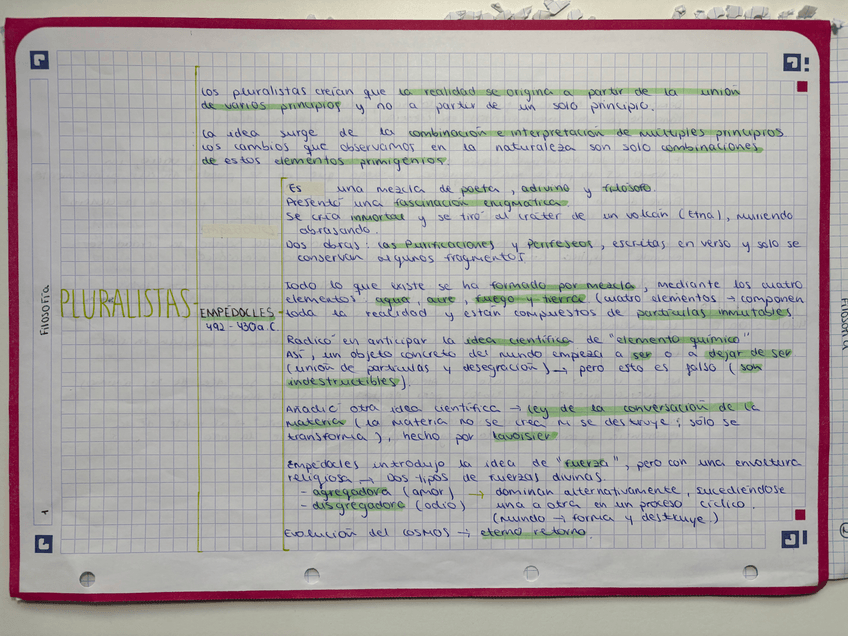 Los pluralistas creían que la realidad se origina a partir de la unión
de varios principios y no a partir de un solo principio.
La idea surge de la combinación e interpretación de múltiples principios
Los cambios que observamos en la naturaleza son solo combinaciones
de estos elementos primigenios.
Es una mezcla de poeta, adivino y filósofo.
Presentó una fascinación enigmática.
Se creía inmortal y se tiró al cráter de un volcán (Etna), muriendo
abrasando.
Dos obras: las Purificaciones y Perifeseos, escritas en verso y solo se
conservan algunos fragmentos.
Todo lo que existe se ha formado por mezcla, mediante los cuatro
elementos: agua, aire, fuego y tierra (cuatro elementos → componen
toda la realidad y están compuestos de partículas inmutables
FILOSOFÍA
PLURALISTAS
EMPÉDOCLES
492 - 430 a.C
Radicó en anticipar la idea científica de "elemento químico"
Así, un objeto concreto del mundo empieza a ser o a dejar de ser
(unión de partículas y desegración) → pero esto es falso (son
indestructibles).
Añadió otra idea científica → Ley de la conversación de la
materia (la materia no se crea ni se destruye; sólo se
transforma), hecho por Lavoisier
Empédocles introdujo la idea de "fuerza", pero con una envoltura
religiosa → Dos tipos de fuerzas divinas.
- agregadora (amor) → dominan alternativamente, sucediéndose
- disgregadora (odio) una a otra en un proceso cíclico.
(mundo → forma y destruye)
Evolución del COSMOS → eterno retorno.
1
FILOSOFÍA